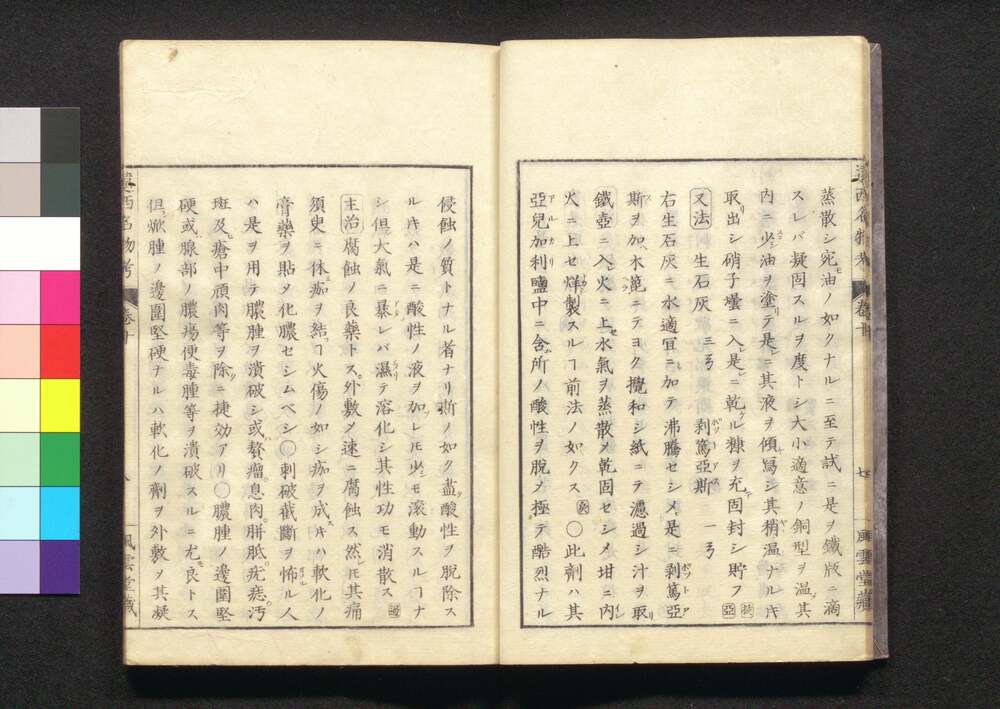 蒸散シ宛モ油ノ如クナルニ至テ試ニ是ヲ鐵版ニ滴
スレバ凝固スルヲ度トシ大小適意ノ銅型ヲ温メ其
内ニ少シ油ヲ塗リテ是ニ其液ヲ傾寫シ其稍温ナルキ
取出シ硝子壜ニ入レ是ニ乾ケル糠ヲ充テ固封シ貯フ
又法 生石灰 三弓 剥篤亞斯 一弓
右生石灰ニ水適宜ニ加テ沸騰セシメ是ニ剥篤亞
斯ヲ加ヘ木箆ニテヨク攪和シ紙ニテ濾過シ汁ヲ取リ
鐵壺ニ入レ火ニ上セ水氣ヲ蒸散メ乾固セシメ坩ニ内レ
火ニ上セ烊製スルヿ前法ノ如クス ○此劑ハ其
亞兒加利鹽中ニ含ム所ノ酸性ヲ脱メ極テ酷烈ナル
侵蝕ノ質トナル者ナリ斯ノ如ク盡ク酸性ヲ脱除ス
ルキハ是ニ酸性ノ液ヲ加フレモ少シモ滚動スルヿナ
シ但大氣ニ暴レバ濕テ溶化シ其性功モ消散ス
主治 腐蝕ノ良藥トス外敷メ速ニ腐蝕ス然レモ其痛
須臾ニ休ミ痂ヲ結フヿ火傷ノ如シ痂ヲ成サハ軟化ノ
膏藥ヲ貼メ化膿セシムベシ○刺破截斷ヲ怖ルヽ人
ハ是ヲ用テ膿腫ヲ潰破シ或ハ贅瘤息肉胼胝疣痣汚
斑及ヒ瘡中頑肉等ヲ除クニ捷効アリ○膿腫ノ邊圍堅
硬或ハ腺部ノ膿瘍便毒腫等ヲ潰破スルニ尤モ良トス
但焮腫ノ邊圍堅硬ナルハ軟化ノ劑ヲ外敷メ其凝
遠西名物考 卷十
七
風雲堂藏
遠西名物考 卷十
八
風雲堂藏